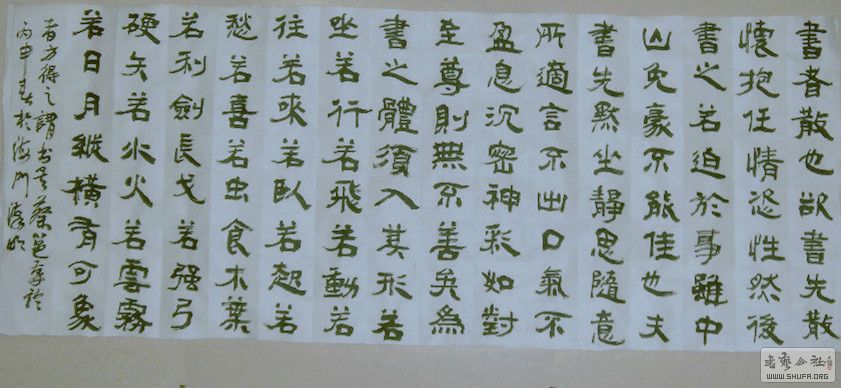 書者散也欲書先散
懷抱任情恣性然後
書之若迫於事雖中
山兔豪不能佳也夫
書先默坐靜思隨意
所適言不出口氣不
盈息沉密神彩如對
至尊則無不善矣為
書之體須入其形若
坐若行若飛若動若
往若來若臥若起若
愁若喜若虫食木葉
若利劍長戈若强弓
硬矢若水火若雲霧
若日月縱橫有可象
者方得之謂書矣蔡邕筆論
丙申春於海門
書藝公社
WWW.SHUFA.ORG